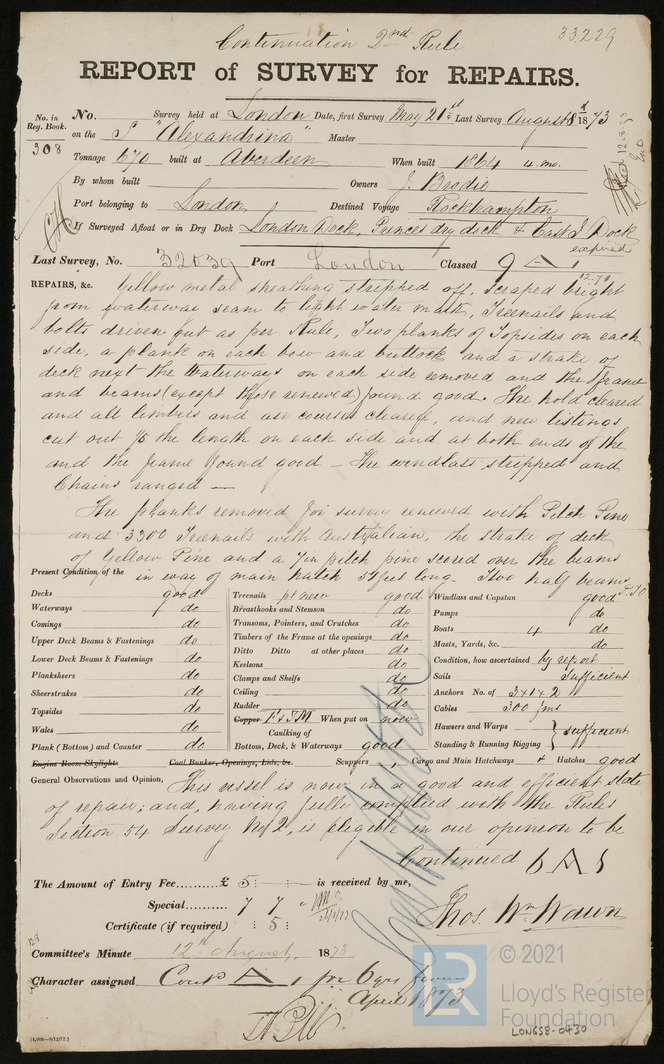 Continuation 2nd Rule
33,229
REPORT of SURVEY for REPAIRS.
No. in Reg. Book.
308
No. Survey held at London Date, first Survey May 21st Last Survey August 8th 1873
on the S "Alexandrina" Master
Tonnage 670 built at Aberdeen When built 1864 4 mo.
By whom built Owners J. Brodie
Port belonging to London Destined Voyage Rockhampton
If Surveyed Afloat or in Dry Dock London Dock, Princes dry dock & East I Dock
expired
Last Survey, No. 32039 Port London Classed 9 A 1
12.70
REPAIRS, &c. Yellow metal sheathing stripped off, scraped bright
from waterway seam to light water mark, Treenails and
bolts driven out as per Rule, Two planks of Topsides on each
side, a plank on each bow and buttock and a strake of
deck next the Waterways on each side removed and the frame
and beams (except those renewed) found good. The hold cleared
and all limbers and air courses cleared, and new listings
cut out 1/5 the length on each side and at both ends of the
and the frame found good — The windlass stripped and
Chains ranged —
The planks removed for survey renewed with Pitch Pine
and 3300 Treenails with Australian, the strake of deck
of Yellow Pine and a 7in pitch pine scored over the beams
in way of main hatch 51 feet long. Two half beams
P.T.O
Present Condition of the
Decks good
Waterways do
Comings do
Upper Deck Beams & Fastenings do
Lower Deck Beams & Fastenings do
Planksheers do
Sheerstrakes do
Topsides do
Wales do
Plank (Bottom) and Counter do
Engine Room Skylights
Treenails pt new good
Breasthooks and Stemson do
Transoms, Pointers, and Crutches do
Timbers of the Frame at the openings do
Ditto Ditto at other places do
Keelsons do
Clamps and Shelfs do
Ceiling do
Rudder do
Copper F & YM When put on now
Caulking of
Bottom, Deck, & Waterways good
Coal Bunker, Openings, Lids, &c.
Windlass and Capstan good
Pumps do
Boats 4 do
Masts, Yards, &c. do
Condition, how ascertained by report
Sails sufficient
Anchors No. of 3 x 1 x 2
Cables 300 fms
Hawsers and Warps
Standing & Running Rigging } sufficient
Scuppers , Cargo and Main Hatchways & Hatches good
General Observations and Opinion, This vessel is now in a good and efficient state
of repair; and, having fully complied with the Rules
Section 54 Survey No 2, is eligible in our opinion to be
Continued 6 A 1
The Amount of Entry Fee £ 5 : : is received by me,
Special 7 7 "
Certificate (if required) : 5 :
Thos. Wm Wawn
Committee's Minute 12th August, 1873
Character assigned Contd A 1 for 6 yrs from
April 1873
[4,000—9/12/72.]
LR
© 2021
Lloyd's Register
Foundation
LONGS8-0430